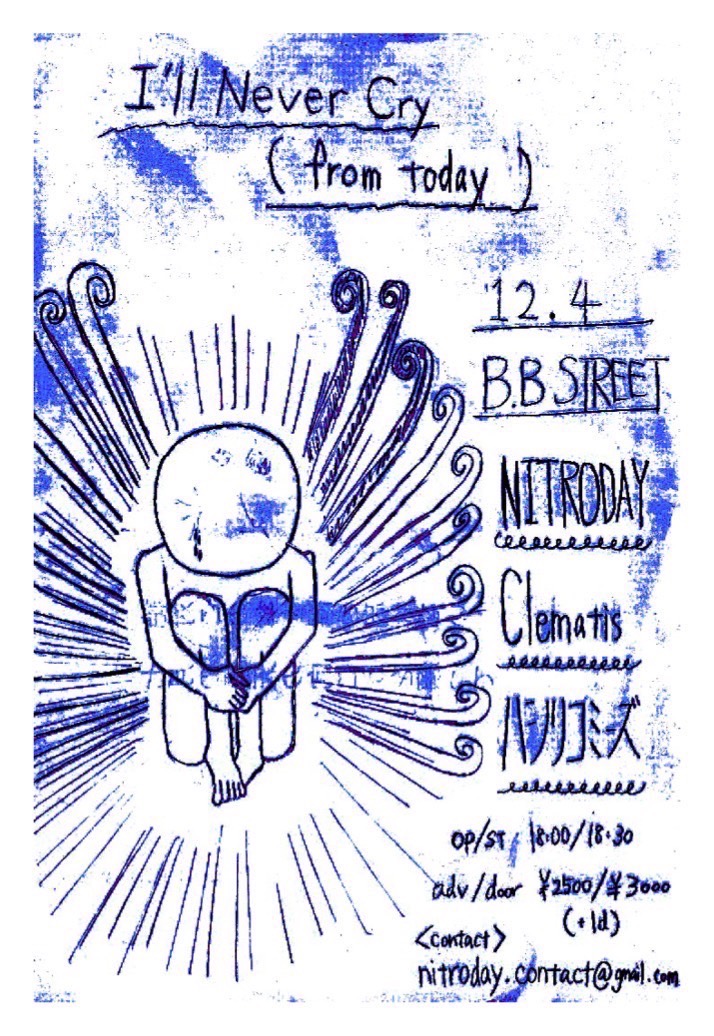 I'll Never Cry
(from today)
12.4
B.B STREET
NITRODAY
Clematis
ハシリコミーズ
op/st 18:00/18:30
adv/door ¥2500/¥3000
(+1d)
<contact>
nitroday.contact@gmail.com